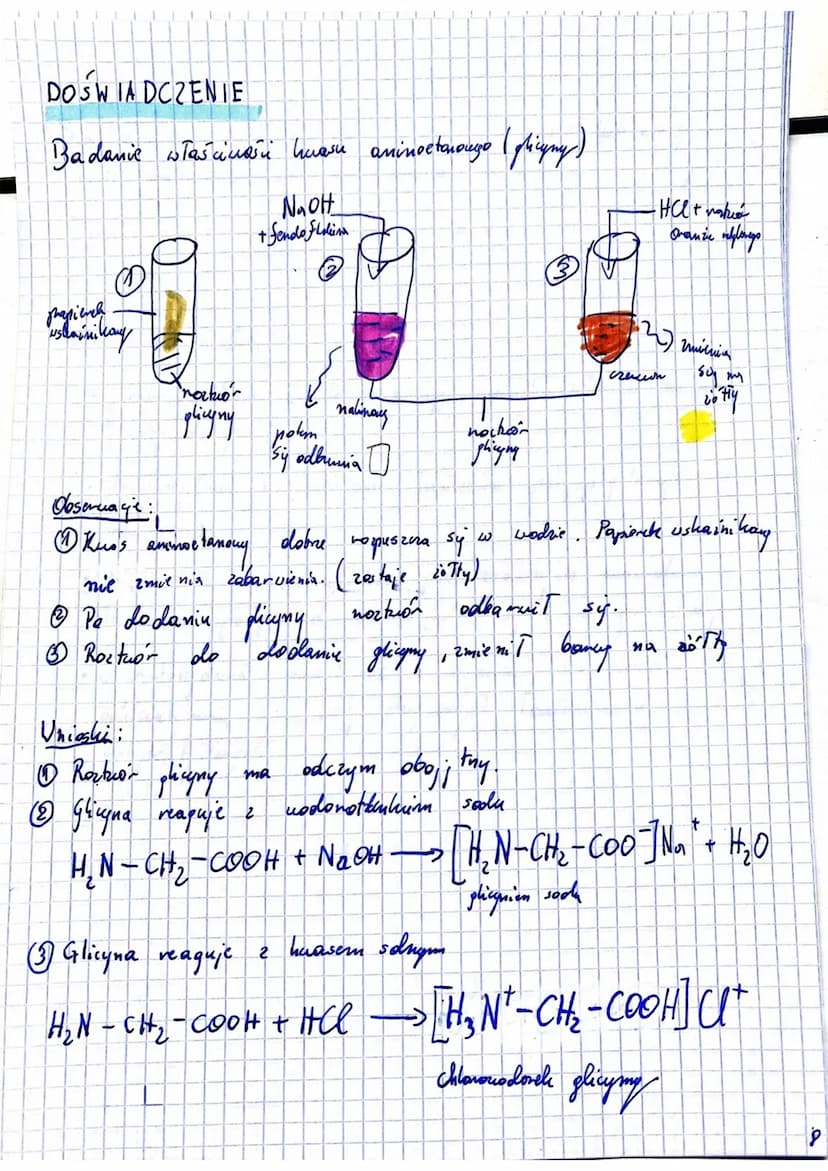 DOŚWIADCZENIE
Badanie właściwości kwasu aminoetanowego (glicyny)
NaOH
+ fenoloftaleina
HCl + roztwór
oranżu metylowego
①
②
③
papierek
wskaźnikowy
roztwór
glicyny
malinowy
potem
się odbarwia
roztwór
glicyny
czerwony
zmienia
się na
żółty
Obserwacje:
① Kwas aminoetanowy dobrze rozpuszcza się w wodzie. Papierek wskaźnikowy
nie zmienia zabarwienia. (zostaje żółty)
② Po dodaniu glicyny roztwór odbarwił się.
③ Roztwór do dodanie glicyny, zmienił barwę na żółty
Wnioski:
① Roztwór glicyny ma odczym obojętny.
② Glicyna reaguje z wodorotlenkiem sodu
H₂N – CH₂ – COOH + NaOH ⟶ [H₂N–CH₂–COO⁻]Na⁺ + H₂O
glicynian sodu
③ Glicyna reaguje z kwasem solnym
H₂N – CH₂ – COOH + HCl ⟶ [H₃N⁺–CH₂–COOH]Cl⁺
chlorowodorek glicyny
8